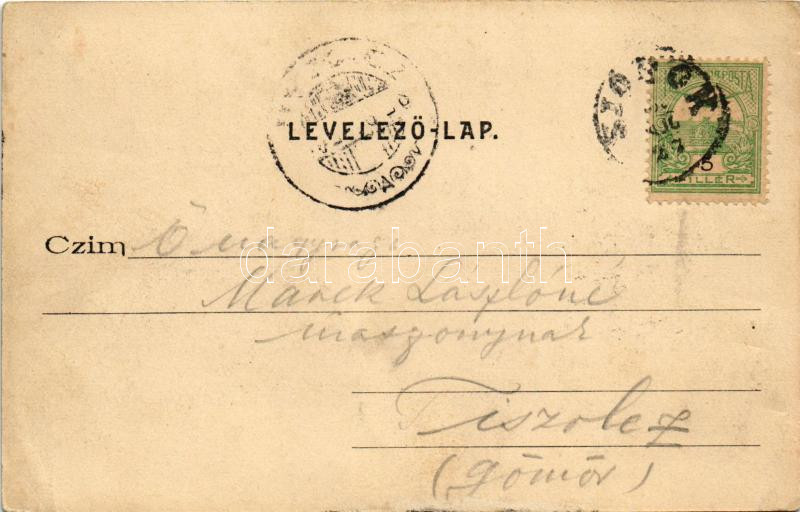 LEVELEZŐ-LAP.
SIÓFOK
5
FILLER
Czim Ő nagysága
Marek Lászlóné
úraszonynak
Tiszolcz
(Gömör)
darabanth